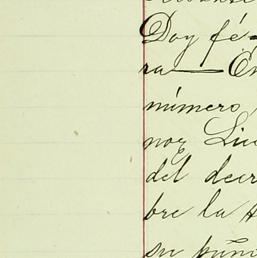 Doy fé-
ra — En
número
noz Lic
del decr
bre la
su puño